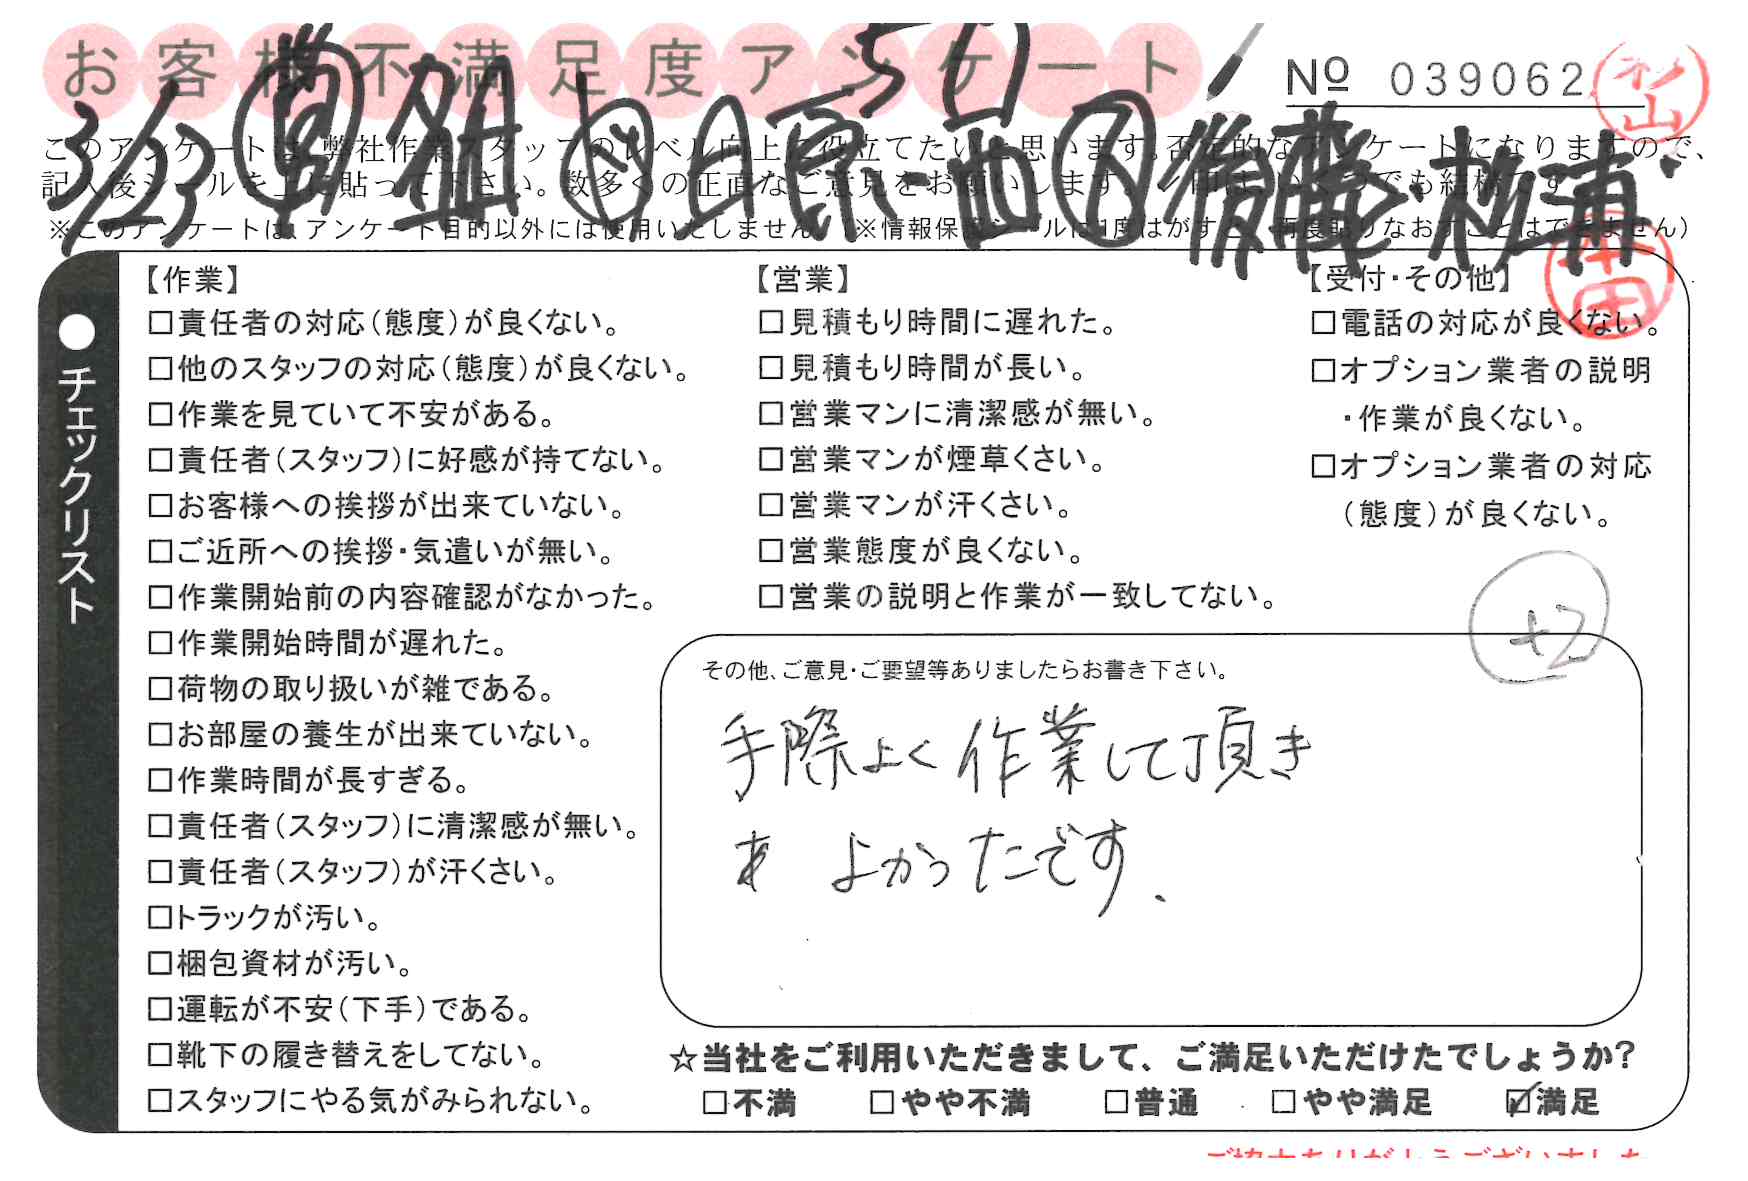 お客様不満足度アンケート
№ 039062
杉山
このアンケートは、弊社作業スタッフのレベル向上に役立てたいと思います。否定的なアンケートになりますので、
記入後シールを上に貼って下さい。数多くの正直なご意見をお願いします。
※このアンケートは、アンケート目的以外には使用いたしません。(※情報保護シールは1度はがすと、再度貼りなおすことはできません)
3/23
●チェックリスト
【作業】
□責任者の対応(態度)が良くない。
□他のスタッフの対応(態度)が良くない。
□作業を見ていて不安がある。
□責任者(スタッフ)に好感が持てない。
□お客様への挨拶が出来ていない。
□ご近所への挨拶・気遣いが無い。
□作業開始前の内容確認がなかった。
□作業開始時間が遅れた。
□荷物の取り扱いが雑である。
□お部屋の養生が出来ていない。
□作業時間が長すぎる。
□責任者(スタッフ)に清潔感が無い。
□責任者(スタッフ)が汗くさい。
□トラックが汚い。
□梱包資材が汚い。
□運転が不安(下手)である。
□靴下の履き替えをしてない。
□スタッフにやる気がみられない。
【営業】
□見積もり時間に遅れた。
□見積もり時間が長い。
□営業マンに清潔感が無い。
□営業マンが煙草くさい。
□営業マンが汗くさい。
□営業態度が良くない。
□営業の説明と作業が一致してない。
【受付・その他】
□電話の対応が良くない。
□オプション業者の説明
・作業が良くない。
□オプション業者の対応
(態度)が良くない。
+2
その他、ご意見・ご要望等ありましたらお書き下さい。
手際よく作業して頂き
よかったです、
☆当社をご利用いただきまして、ご満足いただけたでしょうか?
□不満 □やや不満 □普通 □やや満足 ☑満足
ご協力ありがとうございました